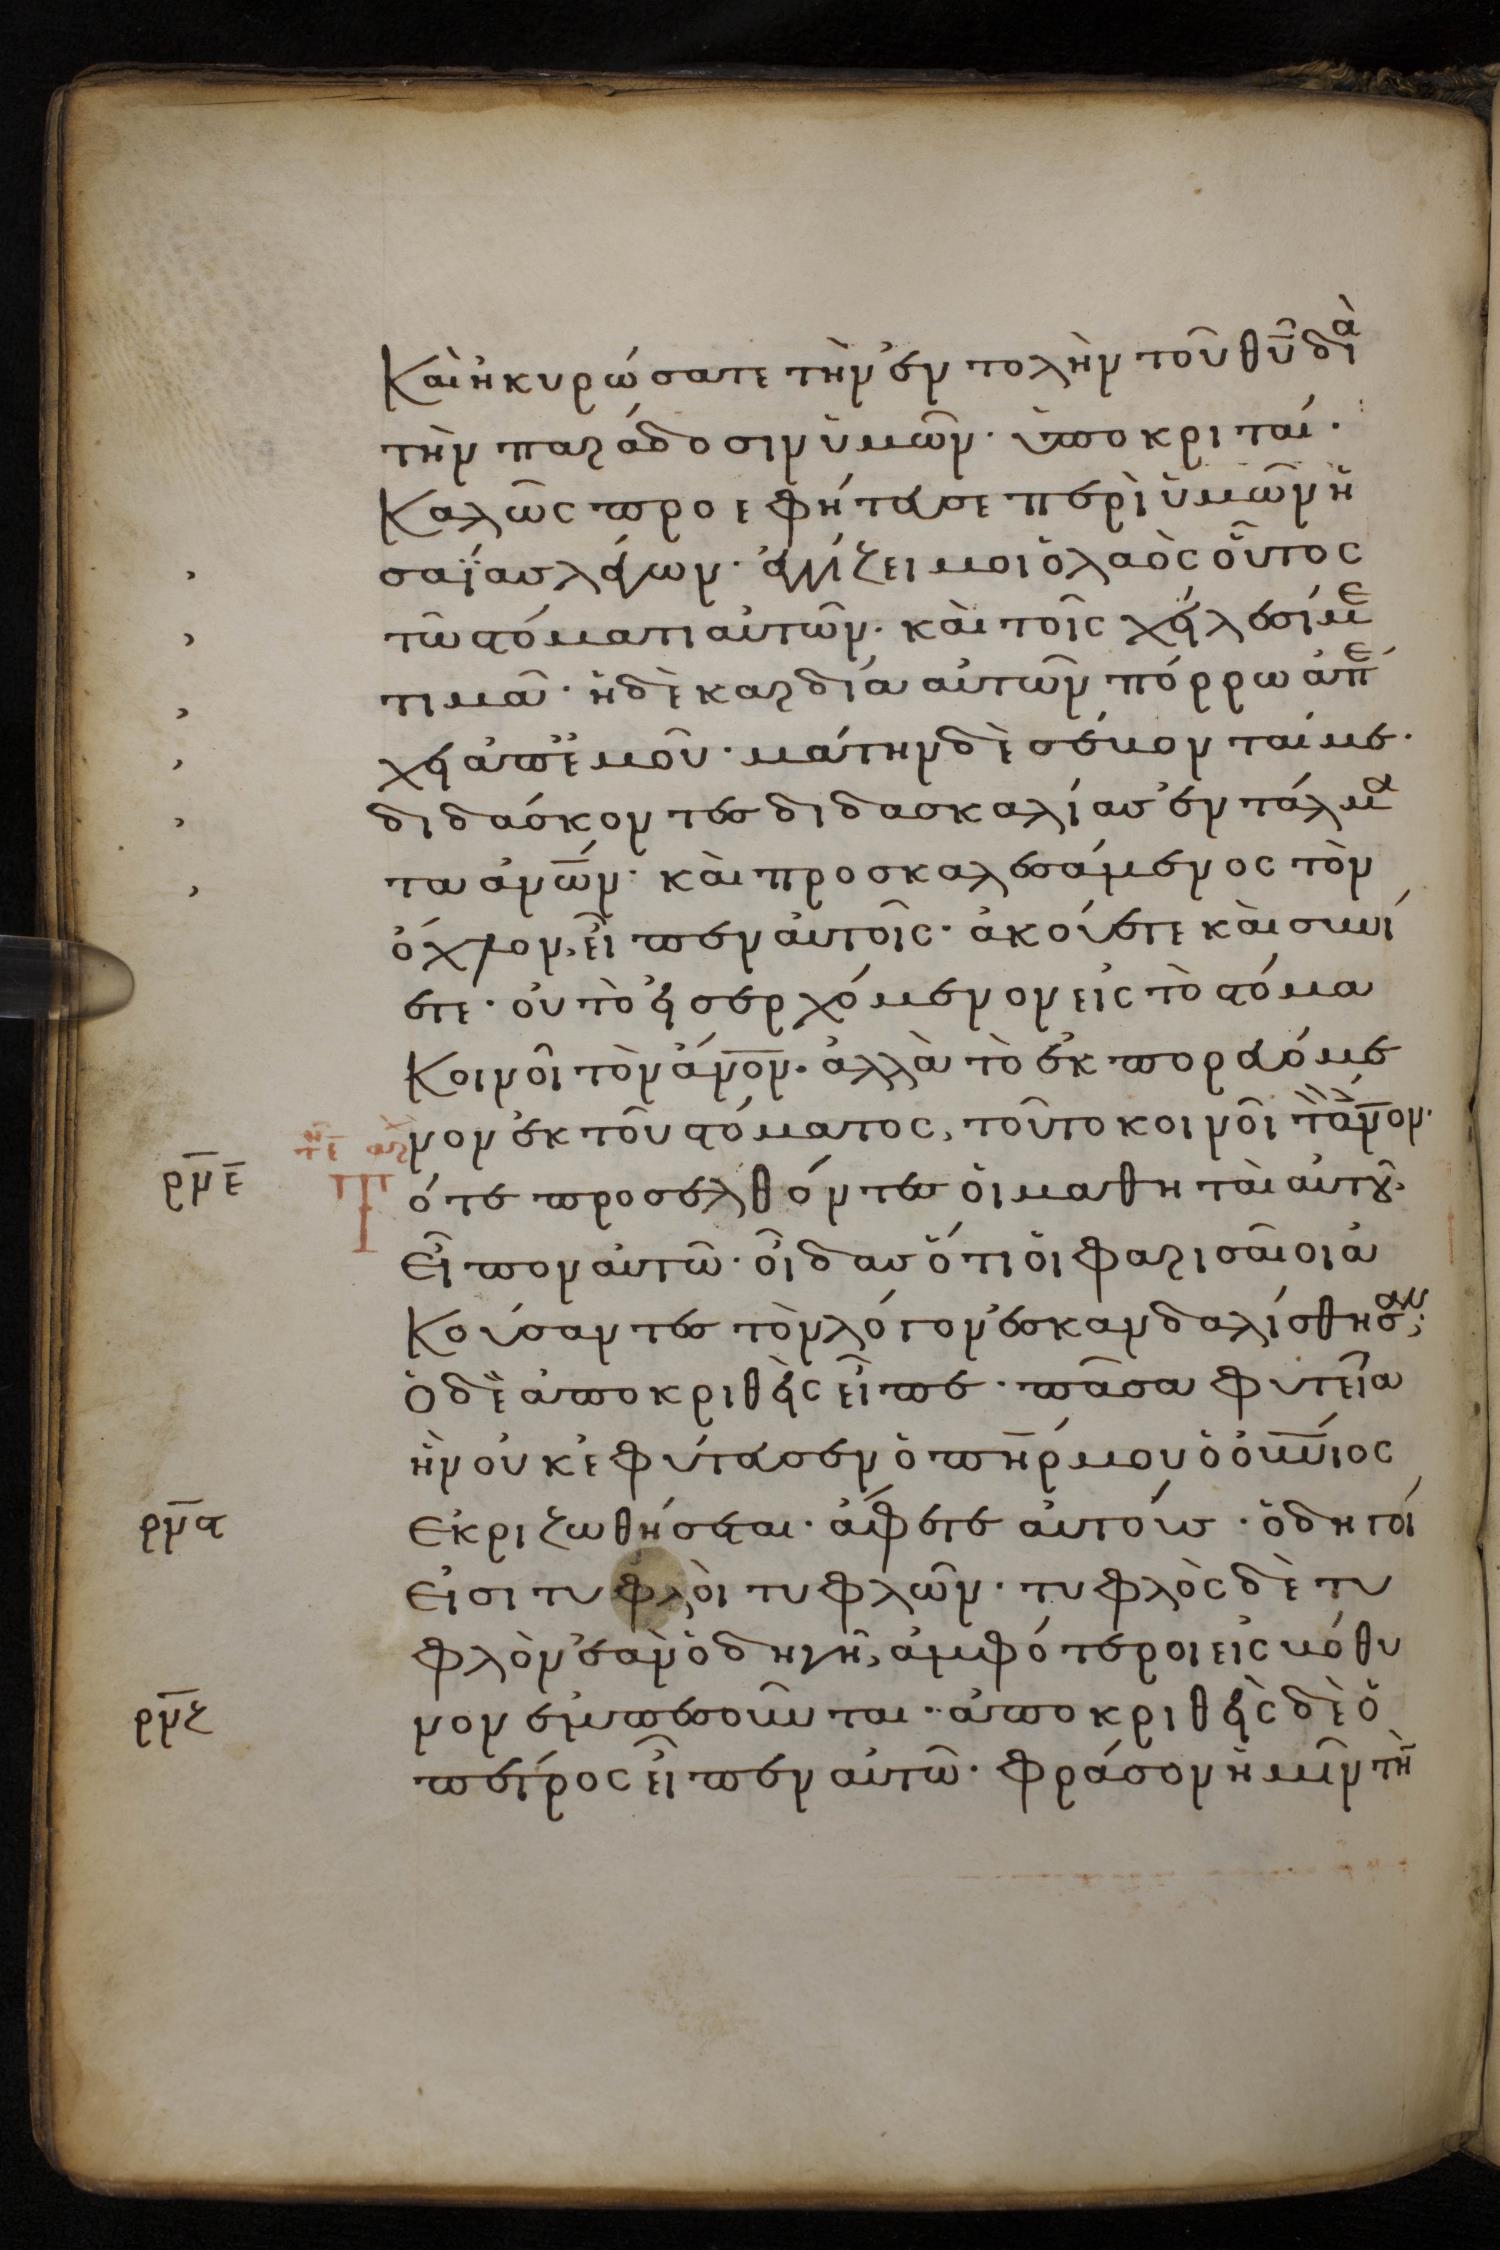 Καὶ ἠκυρώσατε τὴν ἐντολὴν τοῦ θῦ διὰ
τὴν παράδοσιν ὑμῶν· ὑποκριταί·
Καλῶς προεφήτευσε περὶ ὑμῶν ἡ
σαΐας λέγων· ἐγγίζει μοι ὁ λαὸς οὗτος
τῶ στόματι αὐτῶν· καὶ τοῖς χείλεσί με
τιμᾶ· ἡ δὲ καρδία αὐτῶν πόρρω ἀπέ
χει ἀπ' ἐμοῦ· μάτην δὲ σέβονταί με·
διδάσκοντες διδασκαλίας ἐντάλμα
τα ἀνῶν· καὶ προσκαλεσάμενος τὸν
ὄχλον, εἶπεν αὐτοῖς· ἀκούετε καὶ συνί
ετε· οὐ τὸ εἰσερχόμενον εἰς τὸ στόμα
Κοινοῖ τὸν ἄνον· ἀλλὰ τὸ ἐκπορευόμε
νον ἐκ τοῦ στόματος, τοῦτο κοινοῖ τὸν ἄνον·
ρμε Τότε προσελθόντες οἱ μαθηταὶ αὐτοῦ,
εἶπον αὐτῶ· οἶδας ὅτι οἱ φαρισαῖοι ἀ
Κούσαντες τὸν λόγον ἐσκανδαλίσθησαν;
Ὁ δὲ ἀποκριθεὶς εἶπε· πᾶσα φυτεῖα
ἣν οὐκ ἐφύτευσεν ὁ πὴρ μου ὁ οὐνιος
ρμϛ ἐκριζωθήσεται· ἄφετε αὐτούς· ὁδηγοί
εἰσι τυφλοὶ τυφλῶν· τυφλὸς δὲ τυ
φλὸν ἐὰν ὁδηγῆ, ἀμφότεροι εἰς βόθυ
ρμζ νον ἐμπεσοῦνται· ἀποκριθεὶς δὲ ὁ
πέτρος εἶπεν αὐτῶ· φράσον ἡμῖν τὴ